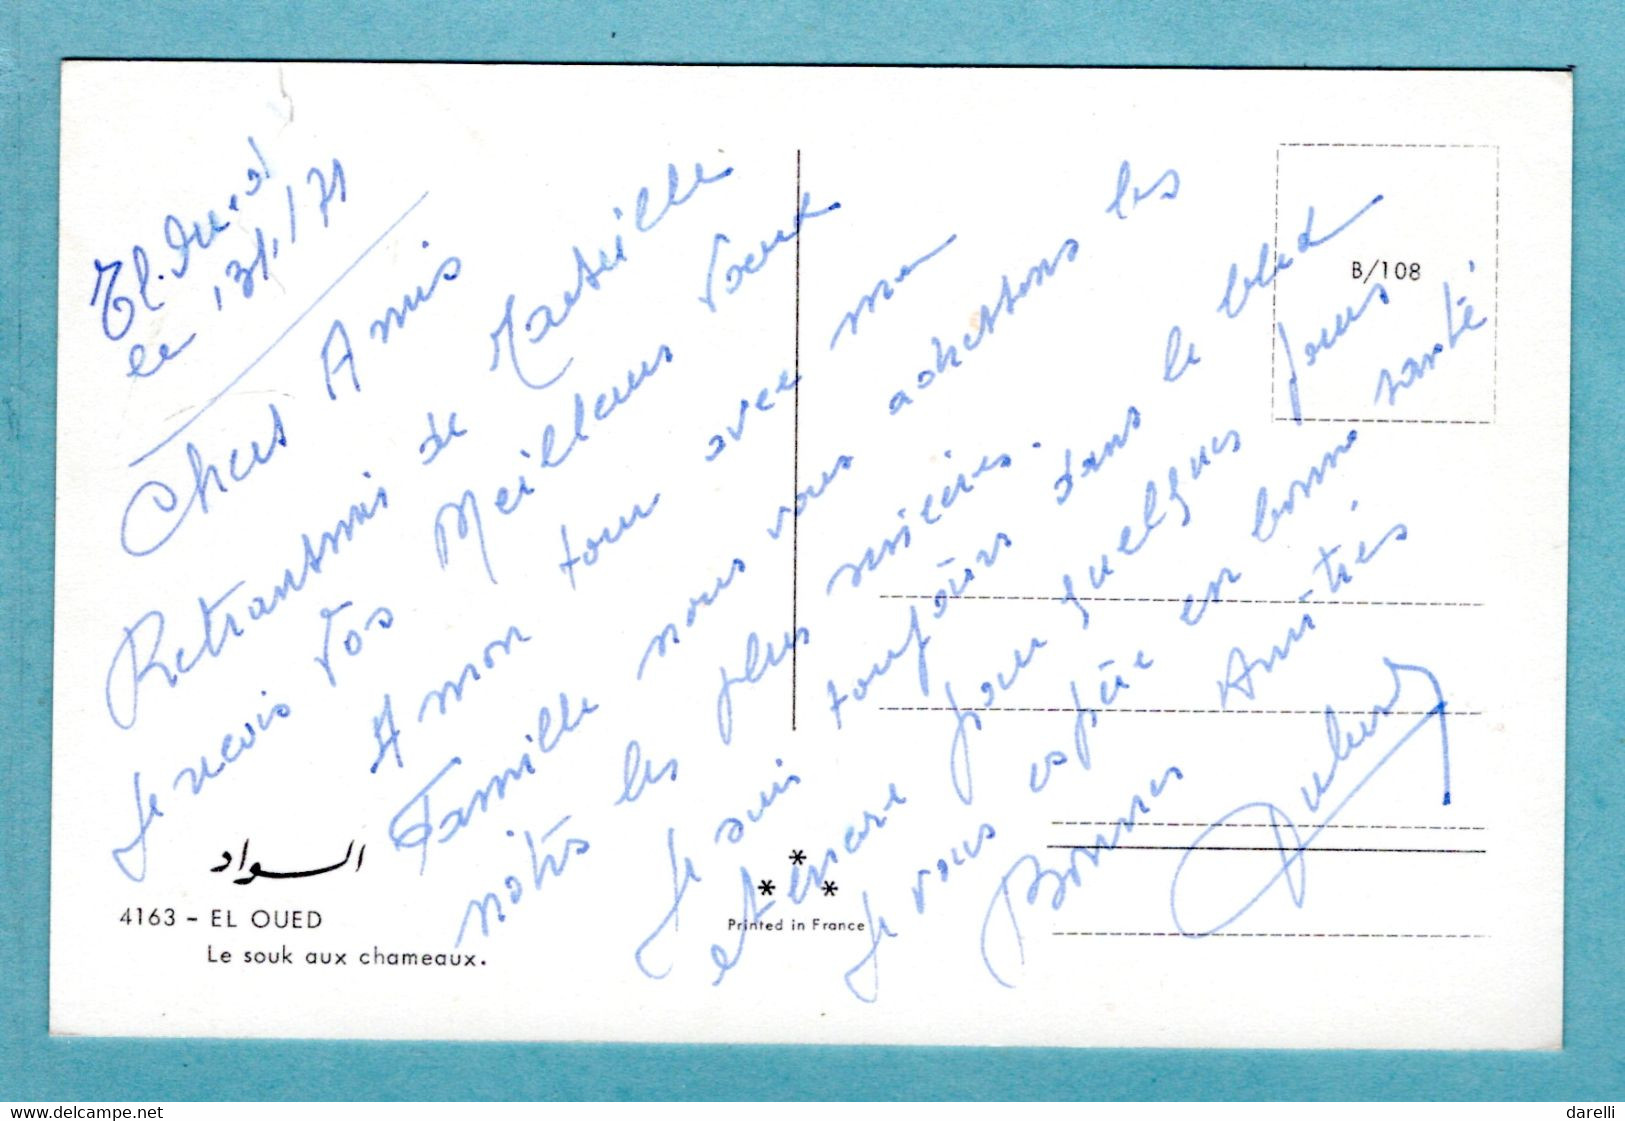 El. Oued
le 13/1/71
Chers Amis
Retransmis de Marseille
Je reçois Vos Meilleurs Voeux
A mon tour avec ma
Famille nous vous adressons les
notres les plus sincères.
Je suis toujours dans le bled
et encore pour quelques jours
Je vous espère en bonne santé
Bonnes Amitiés
B/108
السواد
4163 - EL OUED
Le souk aux chameaux.
***
Printed in France
delcampe.net
darelli